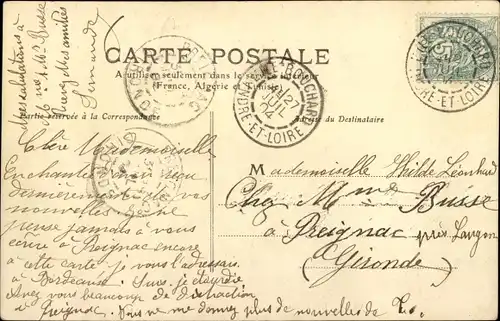 Mes salutations à
Mme Busse
CARTE POSTALE
A utiliser seulement dans le service intérieur
(France, Algérie et Tunisie)
Partie réservée à la Correspondance
Adresse du Destinataire
INDRE-ET-LOIRE
INDRE-ET-LOIRE
Chère Mademoiselle
Enchantée avoir reçu
dernièrement de vos
nouvelles. Je ne
pense jamais à vous
écrire à Preignac encore
à cette carte je vous l'adressais
à Bordeaux. Suis-je étourdie
Avez vous beaucoup de distraction
à Preignac. Vous ne me donnez plus de nouvelles de
Mademoiselle Hilde Léonhard
Chez Mme Busse
à Preignac près Langon
(Gironde)